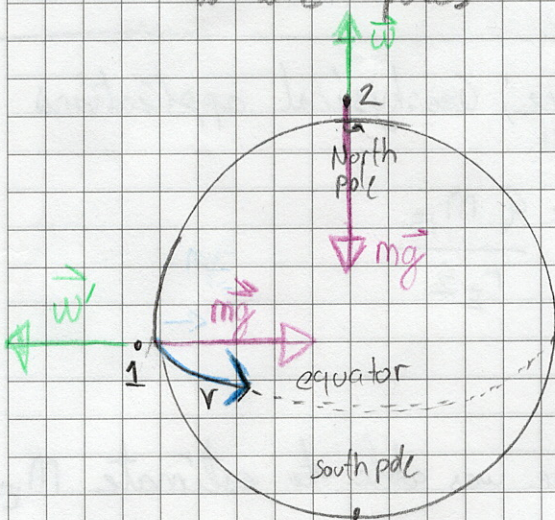 w⃗
2
North
pole
mg⃗
w⃗'
mg⃗
1
equator
v
south pole